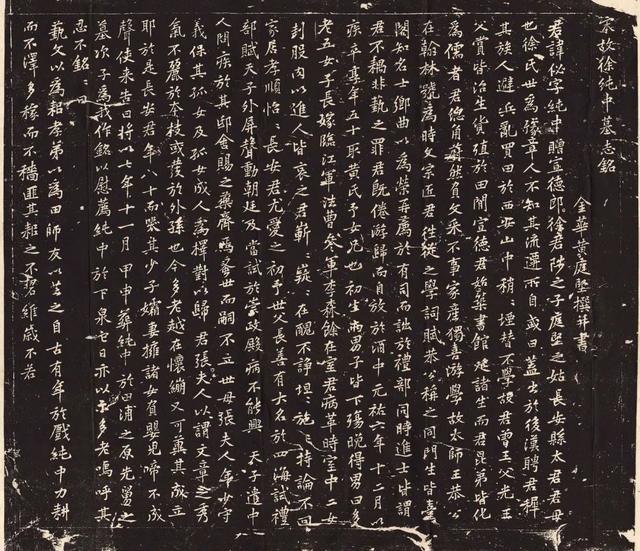 宋故徐純中墓志銘
金華黃庭堅撰并書
君諱佖字純中贈宣德郎徐君陟之子庭堅之姑長安縣太君君母
也徐氏世為豫章人不知其流遷所自或曰蓋出於後漢聘君穉
其族人避兵亂買田於西安山中稍堙替不學故君曾王父光王
父賞皆治生貨殖於田閒宣德君始築書館延諸生而君昆弟皆化
為儒者君總角蘄然負父來不事家產獨喜游學故太師王恭公
在翰林號為時文宗匠君往從之學詞賦恭公稱之同門生皆喜
閱知名士鄉曲以為榮再屬於有司而詘於禮部同時進士皆謂
君不耦非埶之罪君既倦游歸而自放於酒中元祐六年十二月以
疾卒享年五十取黃氏予女兄也初生兩男子皆下殤晚得男曰多
老五女子長嫁臨江軍法曹參軍李森餘在室君病革時室中二女
封股肉以進人皆哀之君嶄嶄在醜不諍埋施持論不回
家居孝順怡怡長安君尤愛之初予世父長善有大名於四海試禮
部賦天子外屏聲動朝廷及當試於崇政殿病不能興天子遣中
人問疾於其邸舍賜之藥齊鳴奔世而嗣不立世母張夫人年少守
義保其孤女及孤女成人為擇對以歸君張夫人以謂文章之秀
氣不麗於本枝或發於外孫也今多老越在懷繃又可冀其成立
耶於是長安君年八十而哭其少子孀妻擁諸女負嬰兒啼不成
聲使來告曰將以七年十一月甲申葬純中於田浦之原先舅之
墓次子為我作銘以慰薦純中於下泉它日亦以示多老嗚呼其
忍不銘銘曰
藝文以為耜孝弟以為田師友以芸之自古有年於戲純中力耕
而不澤多稼而不穡匪其耜之不碧維歲不若